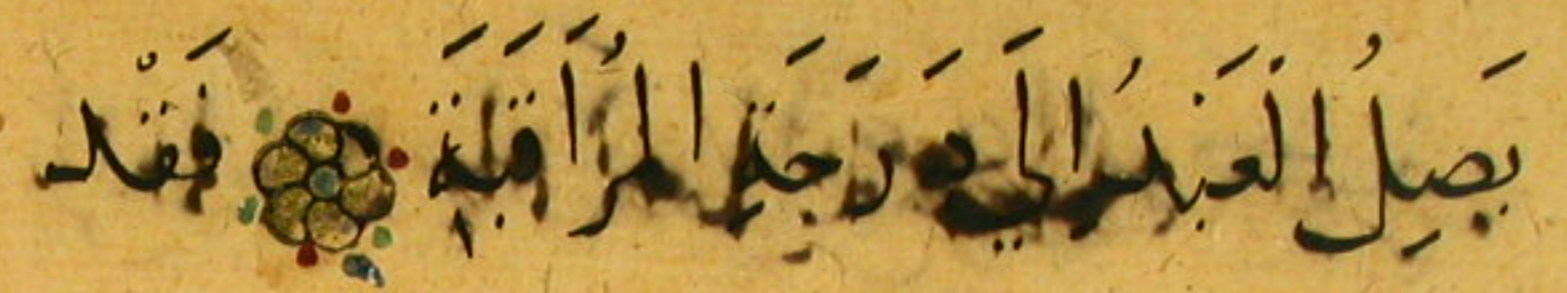 يَصِلُ الْعَبْدُ إلَي دَرَجَةِ الْمُرَاقَبَةِ فَقَدْ